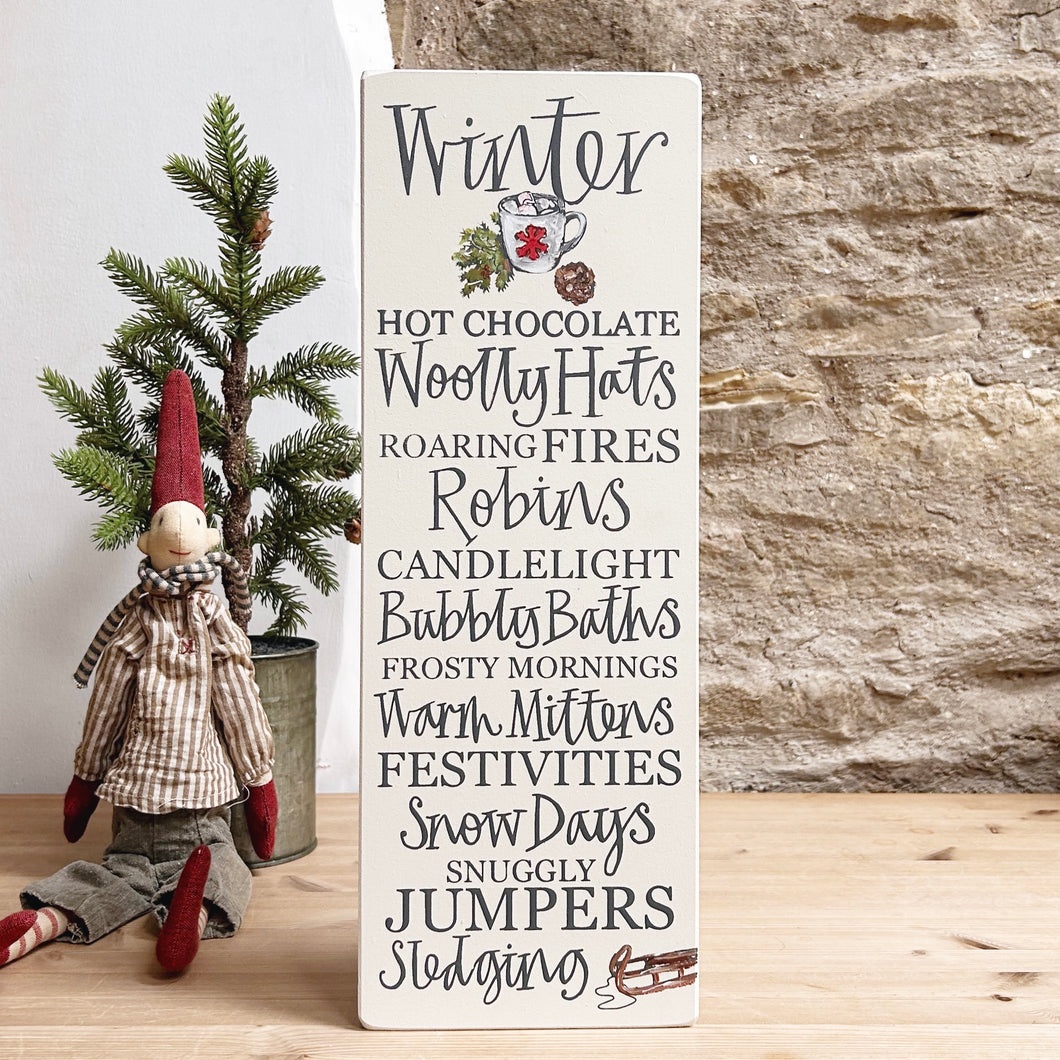 Winter
HOT CHOCOLATE
Woolly Hats
ROARING FIRES
Robins
CANDLELIGHT
Bubbly Baths
FROSTY MORNINGS
Warm Mittens
FESTIVITIES
Snow Days
SNUGGLY
JUMPERS
Sledging